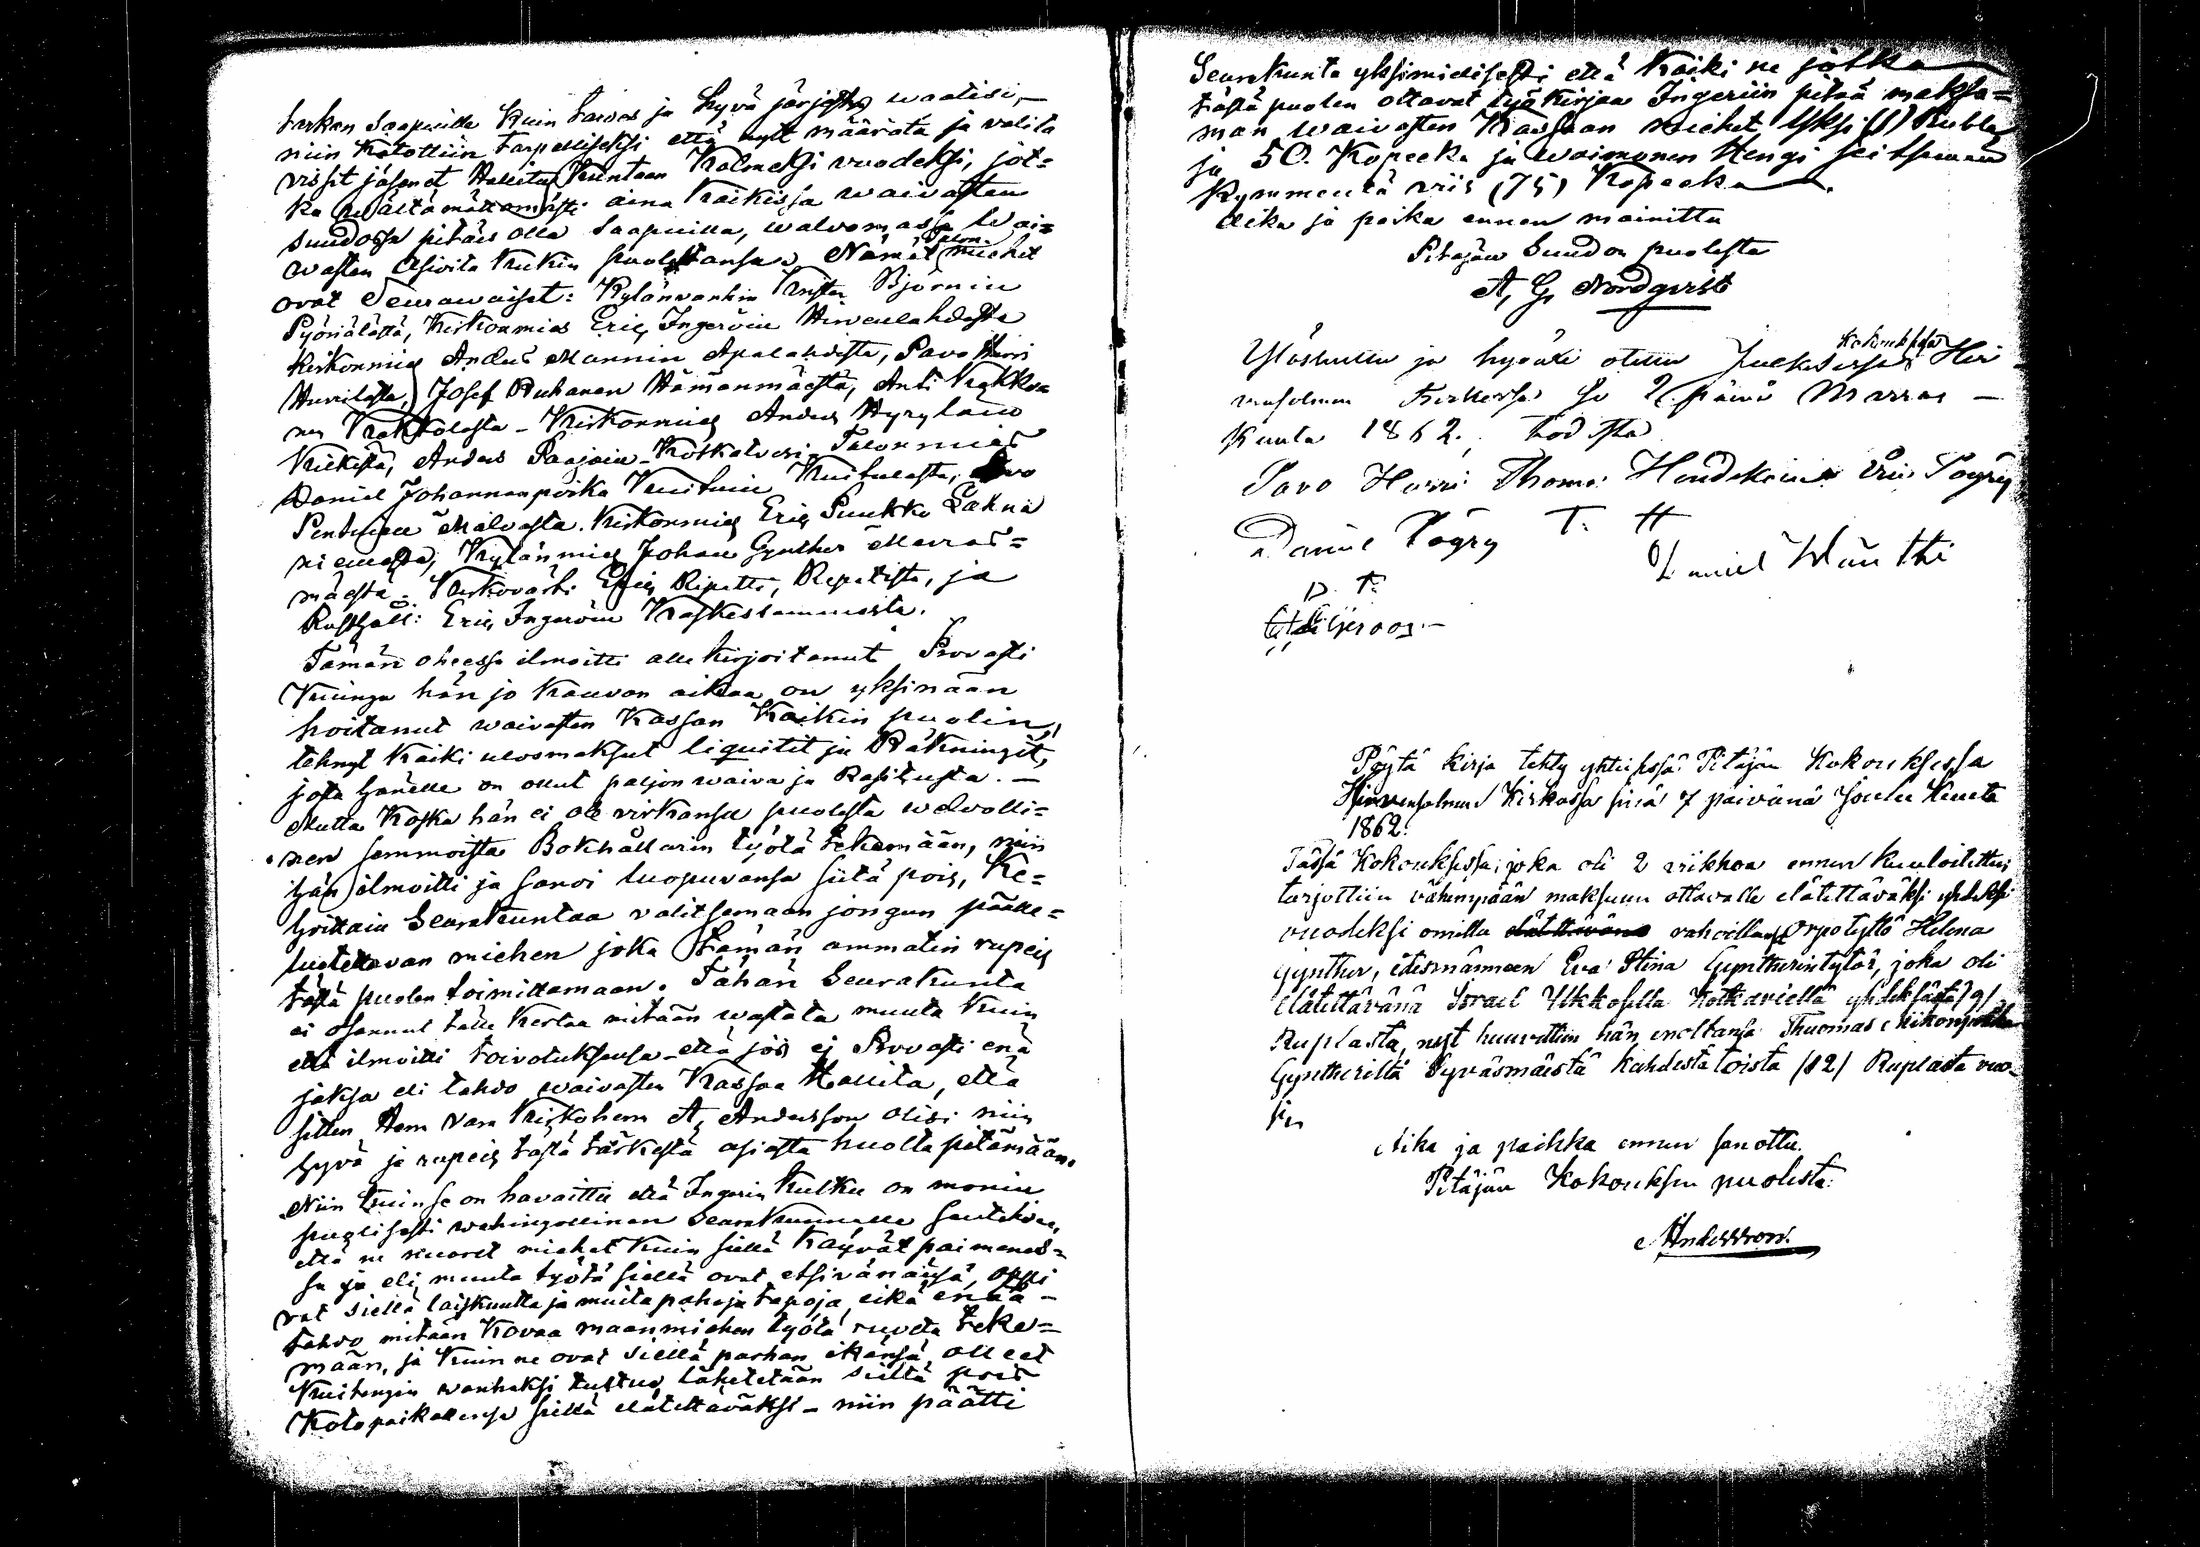 tarkan saapuilla kuin tarvis ja hyvä järjestys waatisi, –
niin katottiin tarpelliseksi että nyt määrätä ja valita
vissit jäsenet Hallitus kuntaan kolmeksi vuodeksi, jot=
ka wälttämättömästi aina kaikissa waivasten
suudossa pitäis olla saapuilla, walvomassa wai=
wasten asioita kukin puolestansa. Nämät miehet
ovat Seurawaiset: Kylänvanhin Krister Björnin
Pyörnälästä, Kirkonmies Eric Ingeröin Hirvenlahdesta
Kirkonmies Anders Mannin Apalahdesta, Pavo Hurri
Hurrilasta, Josef Ruhanen Hämänmäestä, Anti Krakko=
nen Krakkolasta – Kirkonmies Anders Hyryläin
Kilkistä, Anders Paajain – Kotkatvesi – Talonmies
Daniel Johannenpoika Kuituin Kuitulasta, Pavo
Pentinen Malvasta. Kirkonmies Eric Puukko Lahna
niemestä, Kylänmies Johan Gynther Marras=
mäestä – Kirkovärti Eric Ripatti, Repatista, ja
Rusthåll: Eric Ingeröin Kaskestammesta.
Tämän oheessa ilmoitti alle kirjoitanut Provasti
Kuinga hän jo kauvan aikaa on yksinään
hoitanut waivasten kassan kaikin puolin,
tehnyt kaiki ulosmaksut liquitit ja Räkningit,
josta hänelle on ollut paljon waiva ja Rasitusta. –
Mutta koska hän ei ole virkansa puolesta welvolli=
nen semmoista Bokhållarin työtä tekemään, niin
hän ilmoitti ja sanoi luopuvansa siitä pois, ke=
hoittain Seurakuntaa valitsemaan jongun pääle=
luotettavan miehen joka tämän ammatin rupeis
tästä puolen toimittamaan. Tähän Seurakunta
ei osannut tälle kertaa mitään wastata muuta kuin
että ilmoitti toivotuksensa – että jos ej Provasti enä
jaksa eli tahdo waivasten kassaa Hallita, että
sitten Herra Vara Kirkoherra A, Andersson olisi niin
hyvä ja rupeis tästä tärkestä asiasta huolta pitämään.
Niin kuin se on havaittu että Ingerin kulku on monin
puolisesti wahingollinen Seurakunnalle
että ne nuoret miehet kuin siellä käyvät paimenes=
sa ja eli muuta työtä siellä ovat etsivänänsä, oppi
vat siellä laiskuutta ja muita pahoja tapoja, eikä enää –
tahdo mitään kovaa maanmiehen työtä ruveta teke=
mään, ja kuin ne ovat siellä parhan ikänsä olleet
Kuitengin wanhaksi tultua lähetetään sieltä pois
kotopaikallensa siellä elätettäväksi – niin päätti
Seurakunta yksimielisesti että kaiki ne jotka
tästä puolen ottavat työkirjan Ingeriin pitää maksa=
man waivasten kassaan miehet yksi (1) Rubla
ja 50. Kopeeka ja waimonen Hengi seitsemän
kymmentä viis (75) Kopeeka.
Aika ja paika ennen mainittu
Pitäjän Suudon puolesta
A, G, Nordqvist
Ylösluettu ja hyväxi otettu Julkisessa kokouksessa Hir
vensalmen kirkossa se 2 päivä Marras –
kuuta 1862. todistaa
Pavo Hurri Thomas Eric Pögry
Daniel Pögry T. H
Daniel Wänthi
D. P.
Pöytä kirja tehty yhteisessä Pitäjän Kokouksessa
Hirvensalmen Kirkossa sinä 7 päivänä Joulu Kuuta
1862.
Tässä Kokouksessa, joka oli 2 viikkoa ennen kuuloitettu,
tarjottiin vähimpään maksuun ottavalle elätettäväksi yhdeksi
vuodeksi omilla rahoillansa Orpotyttö Helena
Gynther, itismämmeen Eva Stina Gyntherin tytär, joka oli
elätettävänä Israel Ukkosella Kotkaviellä yhdeksästä /9/
Ruplasta, nyt huuvettiin hän enoltansa Thuomas Niikonpoika
Gyntheriltä Syväsmäistä kahdesta toista /12/ Ruplasta vuo=
si
Aika ja paikka ennen sanottu.
Pitäjän Kokouksen puolesta:
Andersson.